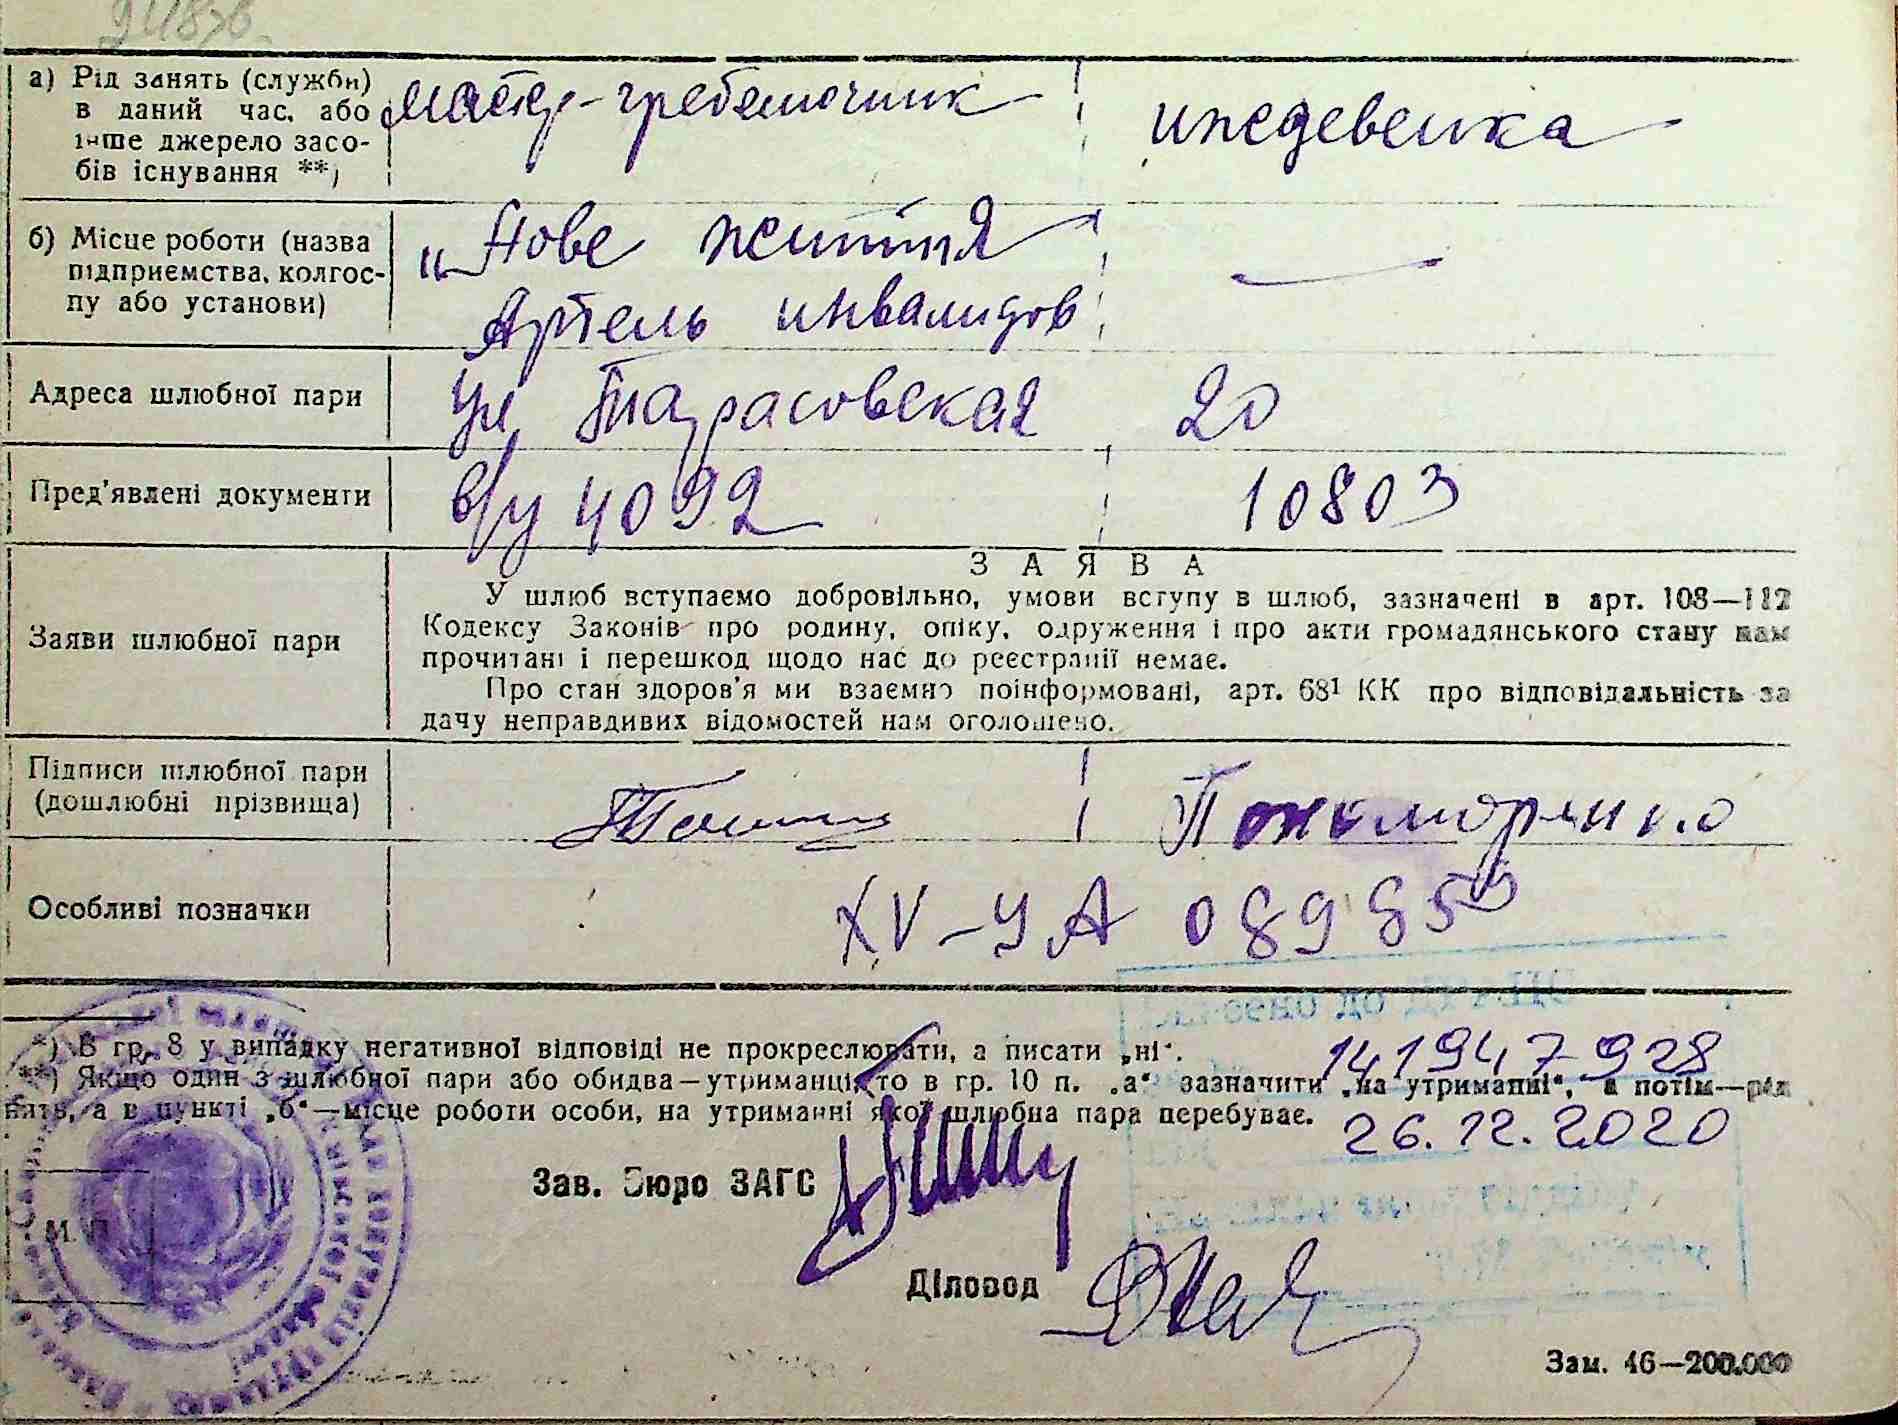 а) Рід занять (служби)
в даний час, або
інше джерело засо-
бів існування **)
мастер-гребеночник
иждевенка
б) Місце роботи (назва
підприємства, колгос-
пу або установи)
„Нове життя"
Артель инвалидов
—
Адреса шлюбної пари
ул Тарасовская 20
Пред'явлені документи
в/у 4092
10803
Заяви шлюбної пари
ЗАЯВА
У шлюб вступаємо добровільно, умови вступу в шлюб, зазначені в арт. 108—112
Кодексу Законів про родину, опіку, одруження і про акти громадянського стану нам
прочитані і перешкод щодо нас до реєстрації немає.
Про стан здоров'я ми взаємно поінформовані, арт. 68¹ КК про відповідальність за
дачу неправдивих відомостей нам оголошено.
Підписи шлюбної пари
(дошлюбні прізвища)
Особливі позначки
XV-УА 089859
*) В гр. 8 у випадку негативної відповіді не прокреслювати, а писати „ні".
141947928
**) Якщо один з шлюбної пари або обидва—утриманці, то в гр. 10 п. „а" зазначити „на утриманні", а потім—рід
нять, а в пункті „б"—місце роботи особи, на утриманні якої шлюбна пара перебуває.
26.12.2020
Зав. Бюро ЗАГС
М.П.
Діловод
Зам. 46—200.000